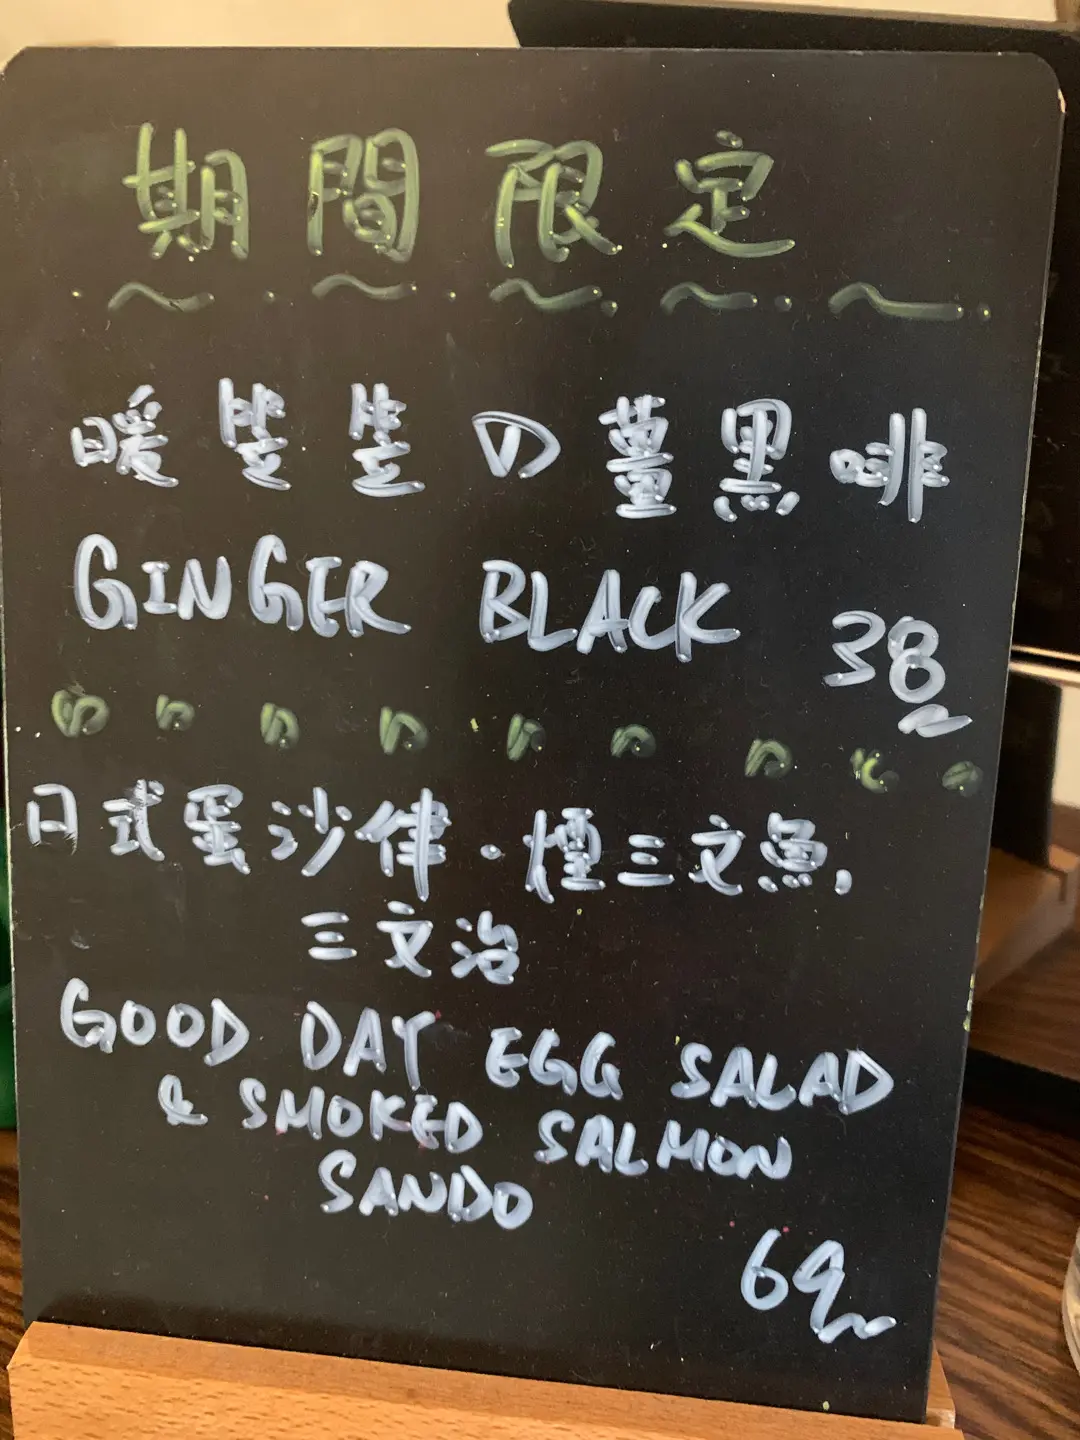 期間限定
暖笠笠の薑黑啡
GINGER BLACK 38
日式蛋沙律·煙三文魚,
三文治
GOOD DAY EGG SALAD
& SMOKED SALMON
SANDO
69